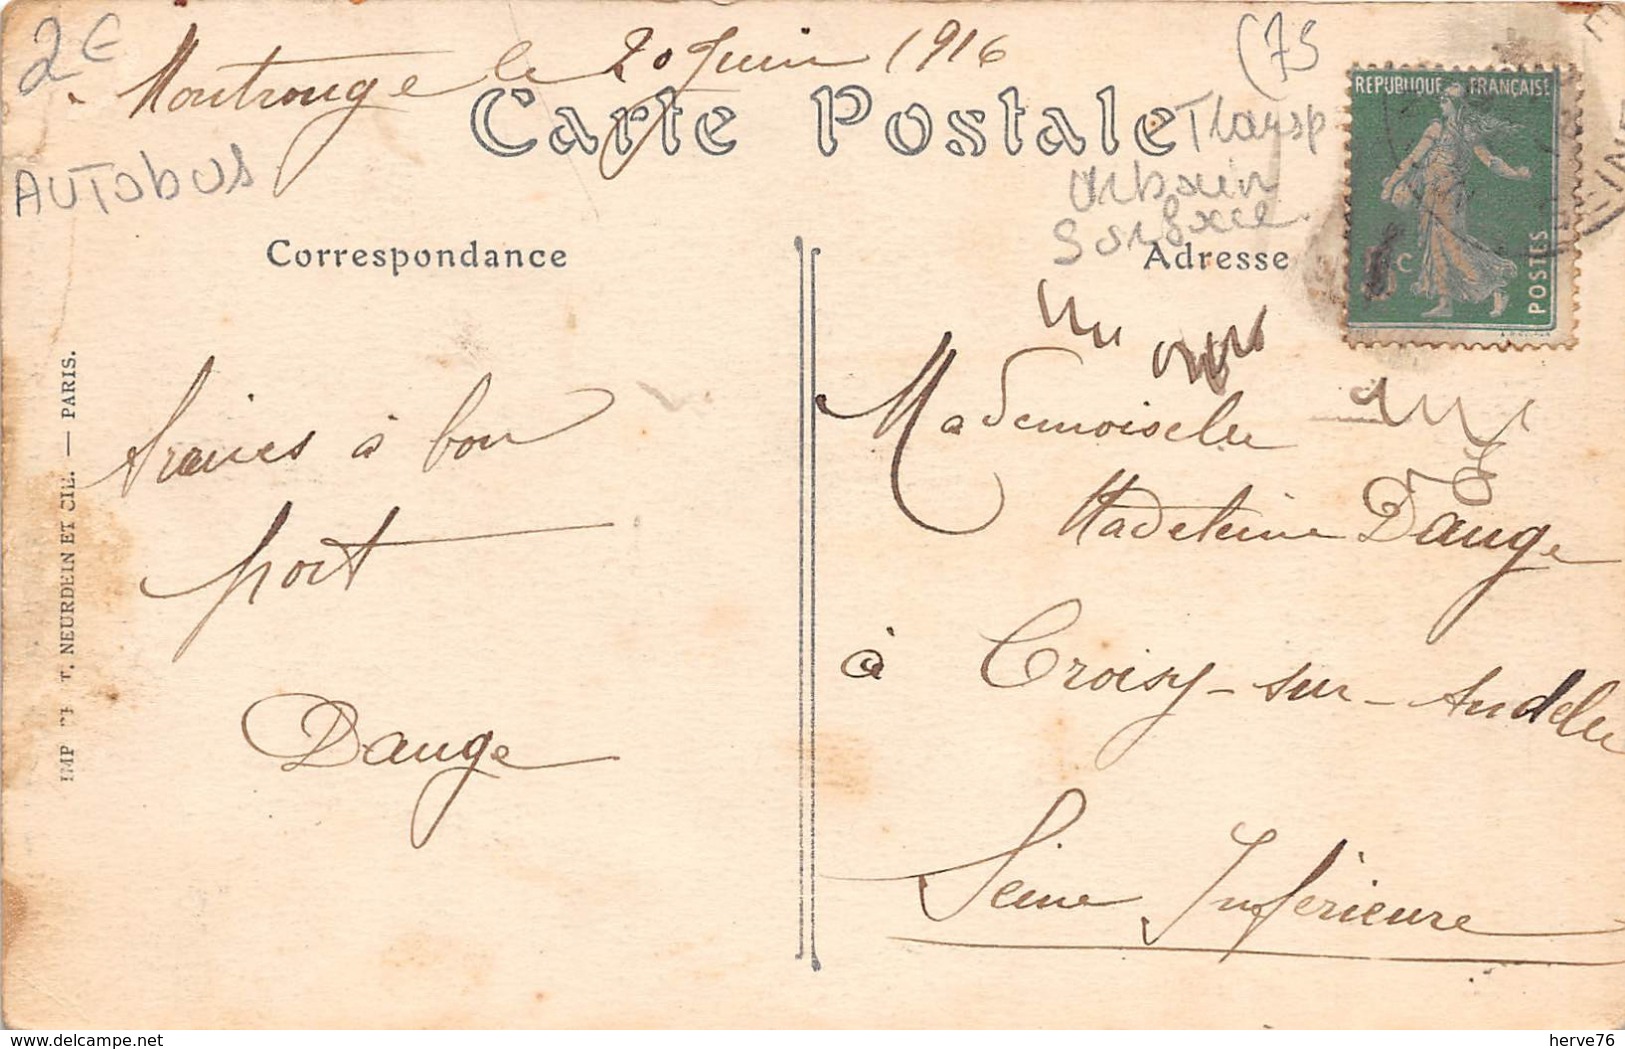 2€
Montrouge le 20 Juin 1916
(75
Carte Postale
Transp
AUTOBUS
urbain
Surface
Correspondance
Adresse
REPUBLIQUE FRANÇAISE
POSTES
c
SEINE
IMP. PHOT. NEURDEIN ET CIE. — PARIS.
à bon
port
Dauge
Mademoiselle
Madeleine Dauge
à Croisy-sur-Andelle
Seine Inférieure
delcampe.net
herve76